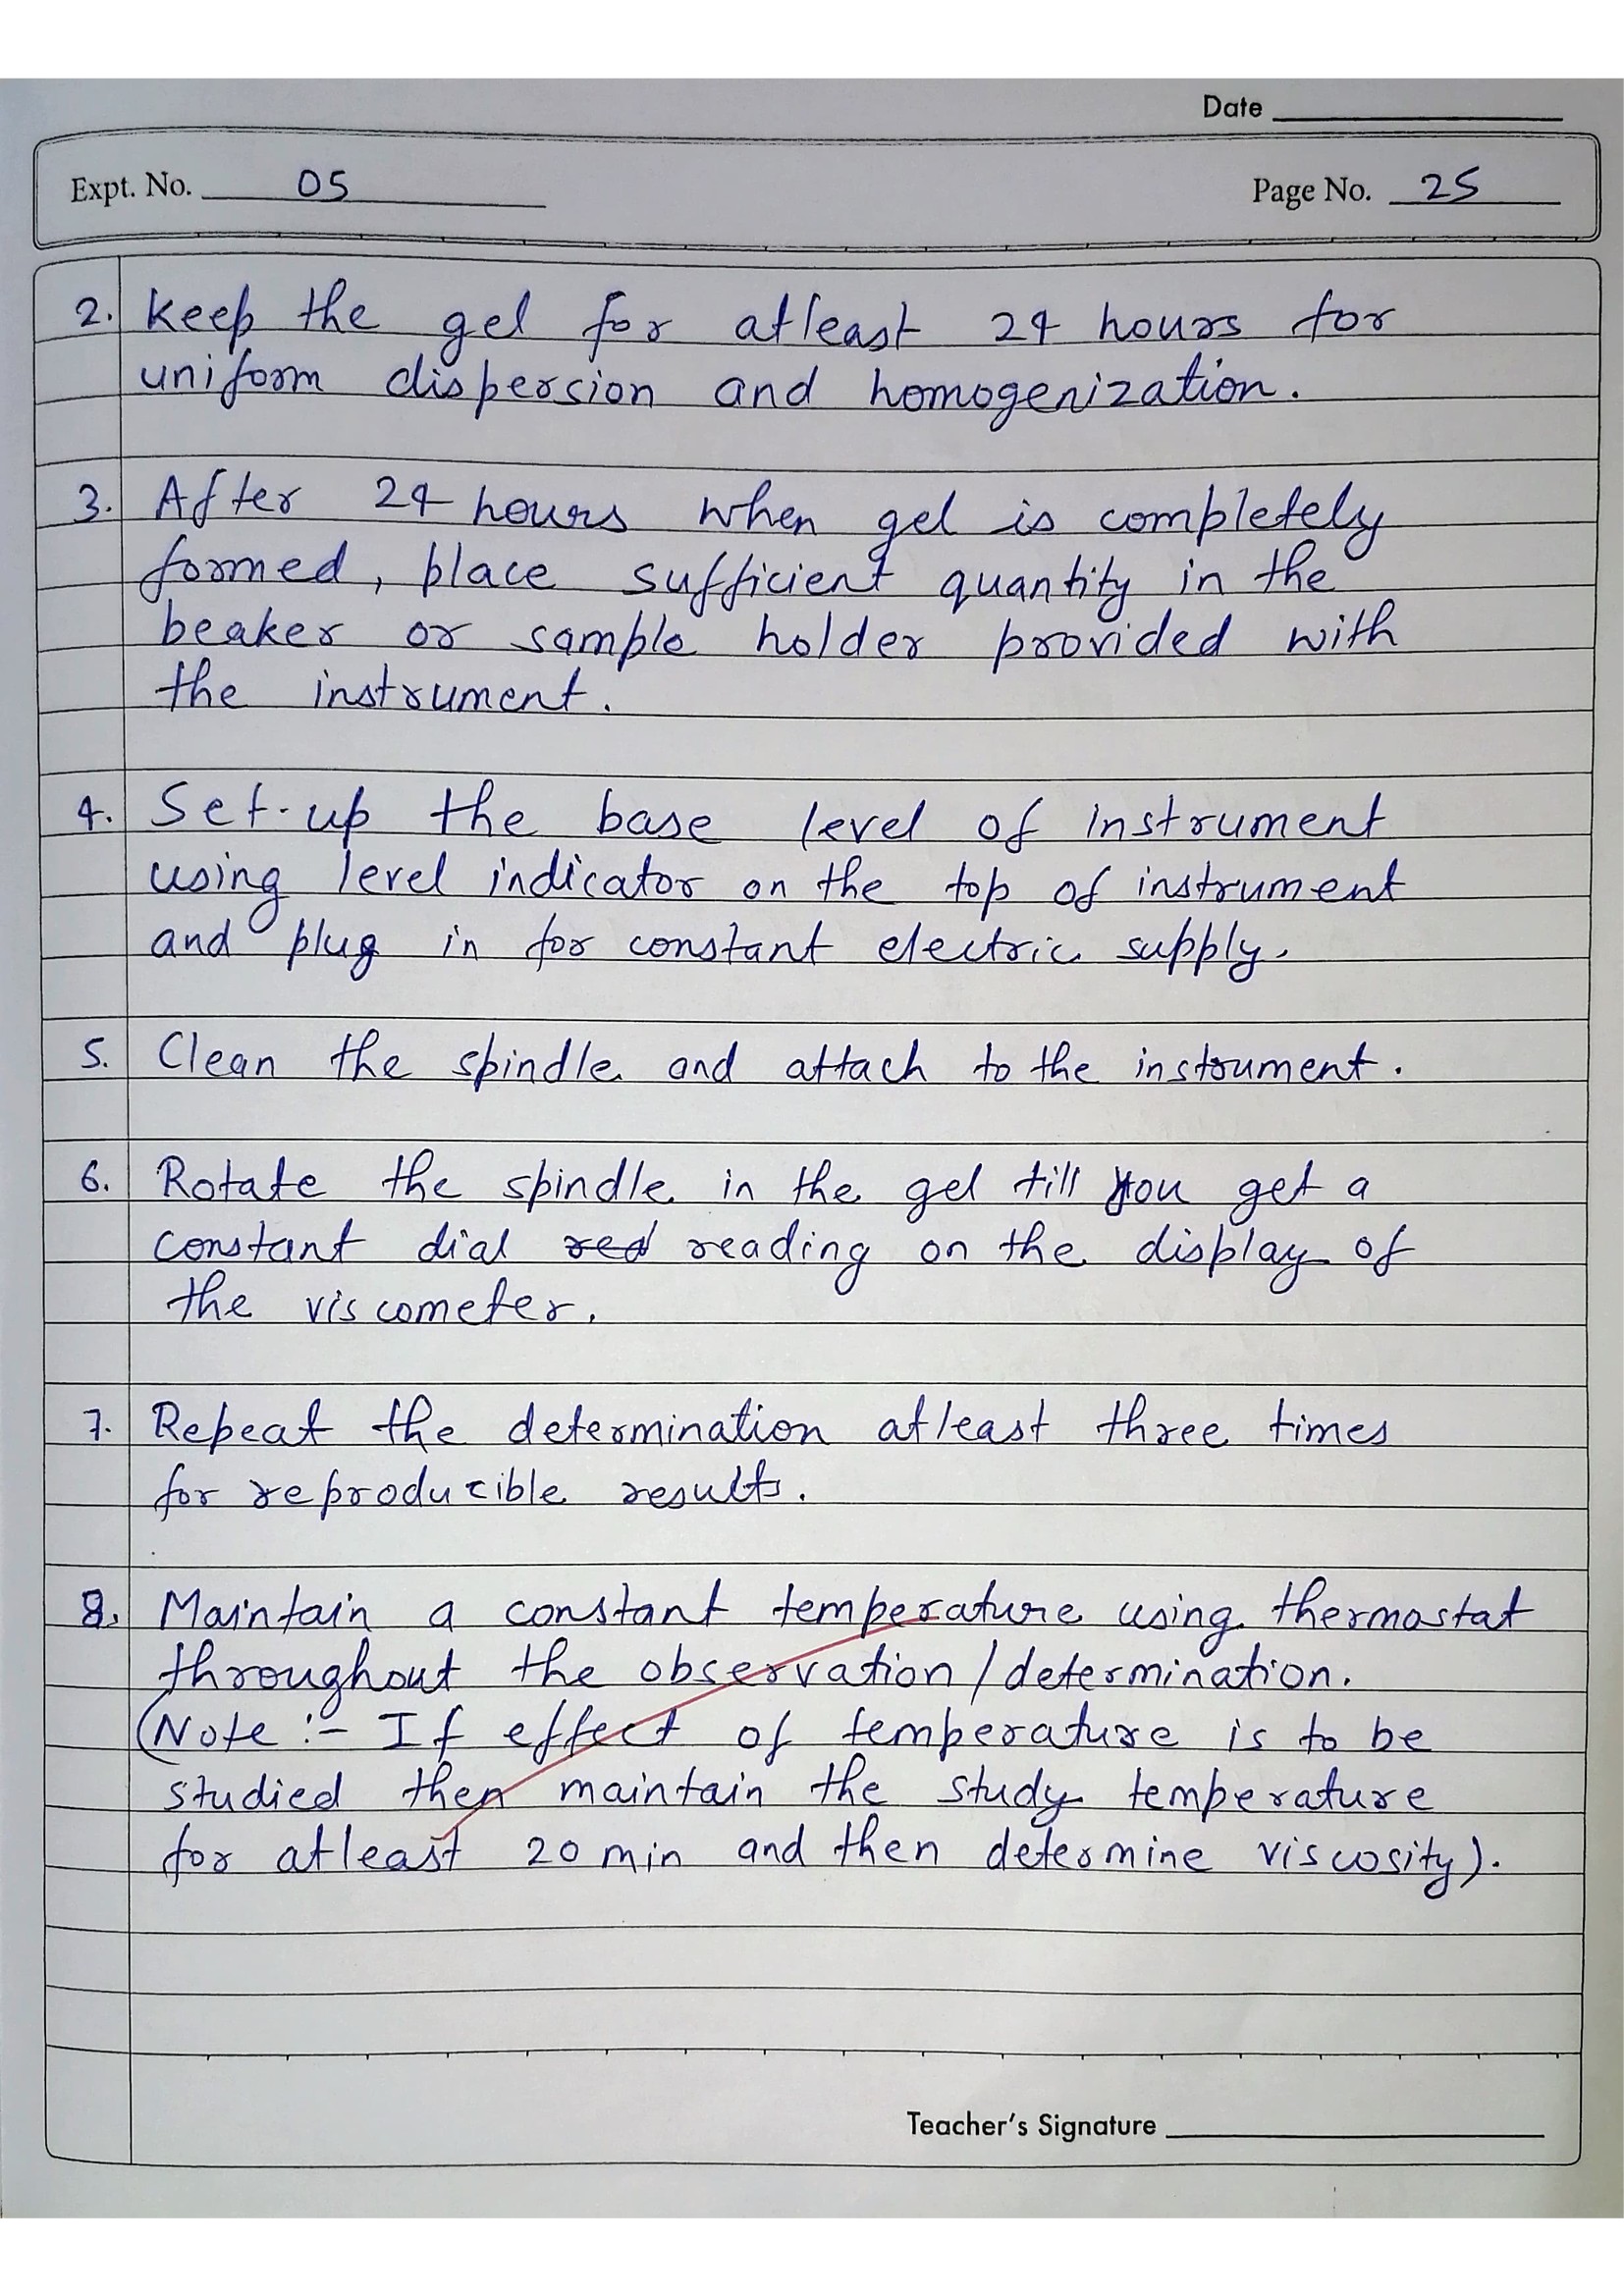 Date
Expt. No. 05
Page No. 25
2. Keep the gel for atleast 24 hours for
uniform dispersion and homogenization.
3. After 24 hours when gel is completely
formed, place sufficient quantity in the
beaker or sample holder provided with
the instrument.
4. Set-up the base level of instrument
using level indicator on the top of instrument
and plug in for constant electric supply.
5. Clean the spindle and attach to the instrument.
6. Rotate the spindle in the gel till you get a
constant dial red reading on the display of
the viscometer.
7. Repeat the determination atleast three times
for reproducible results.
8. Maintain a constant temperature using thermostat
throughout the observation/determination.
(Note :- If effect of temperature is to be
studied then maintain the study temperature
for atleast 20 min and then determine viscosity).
Teacher's Signature